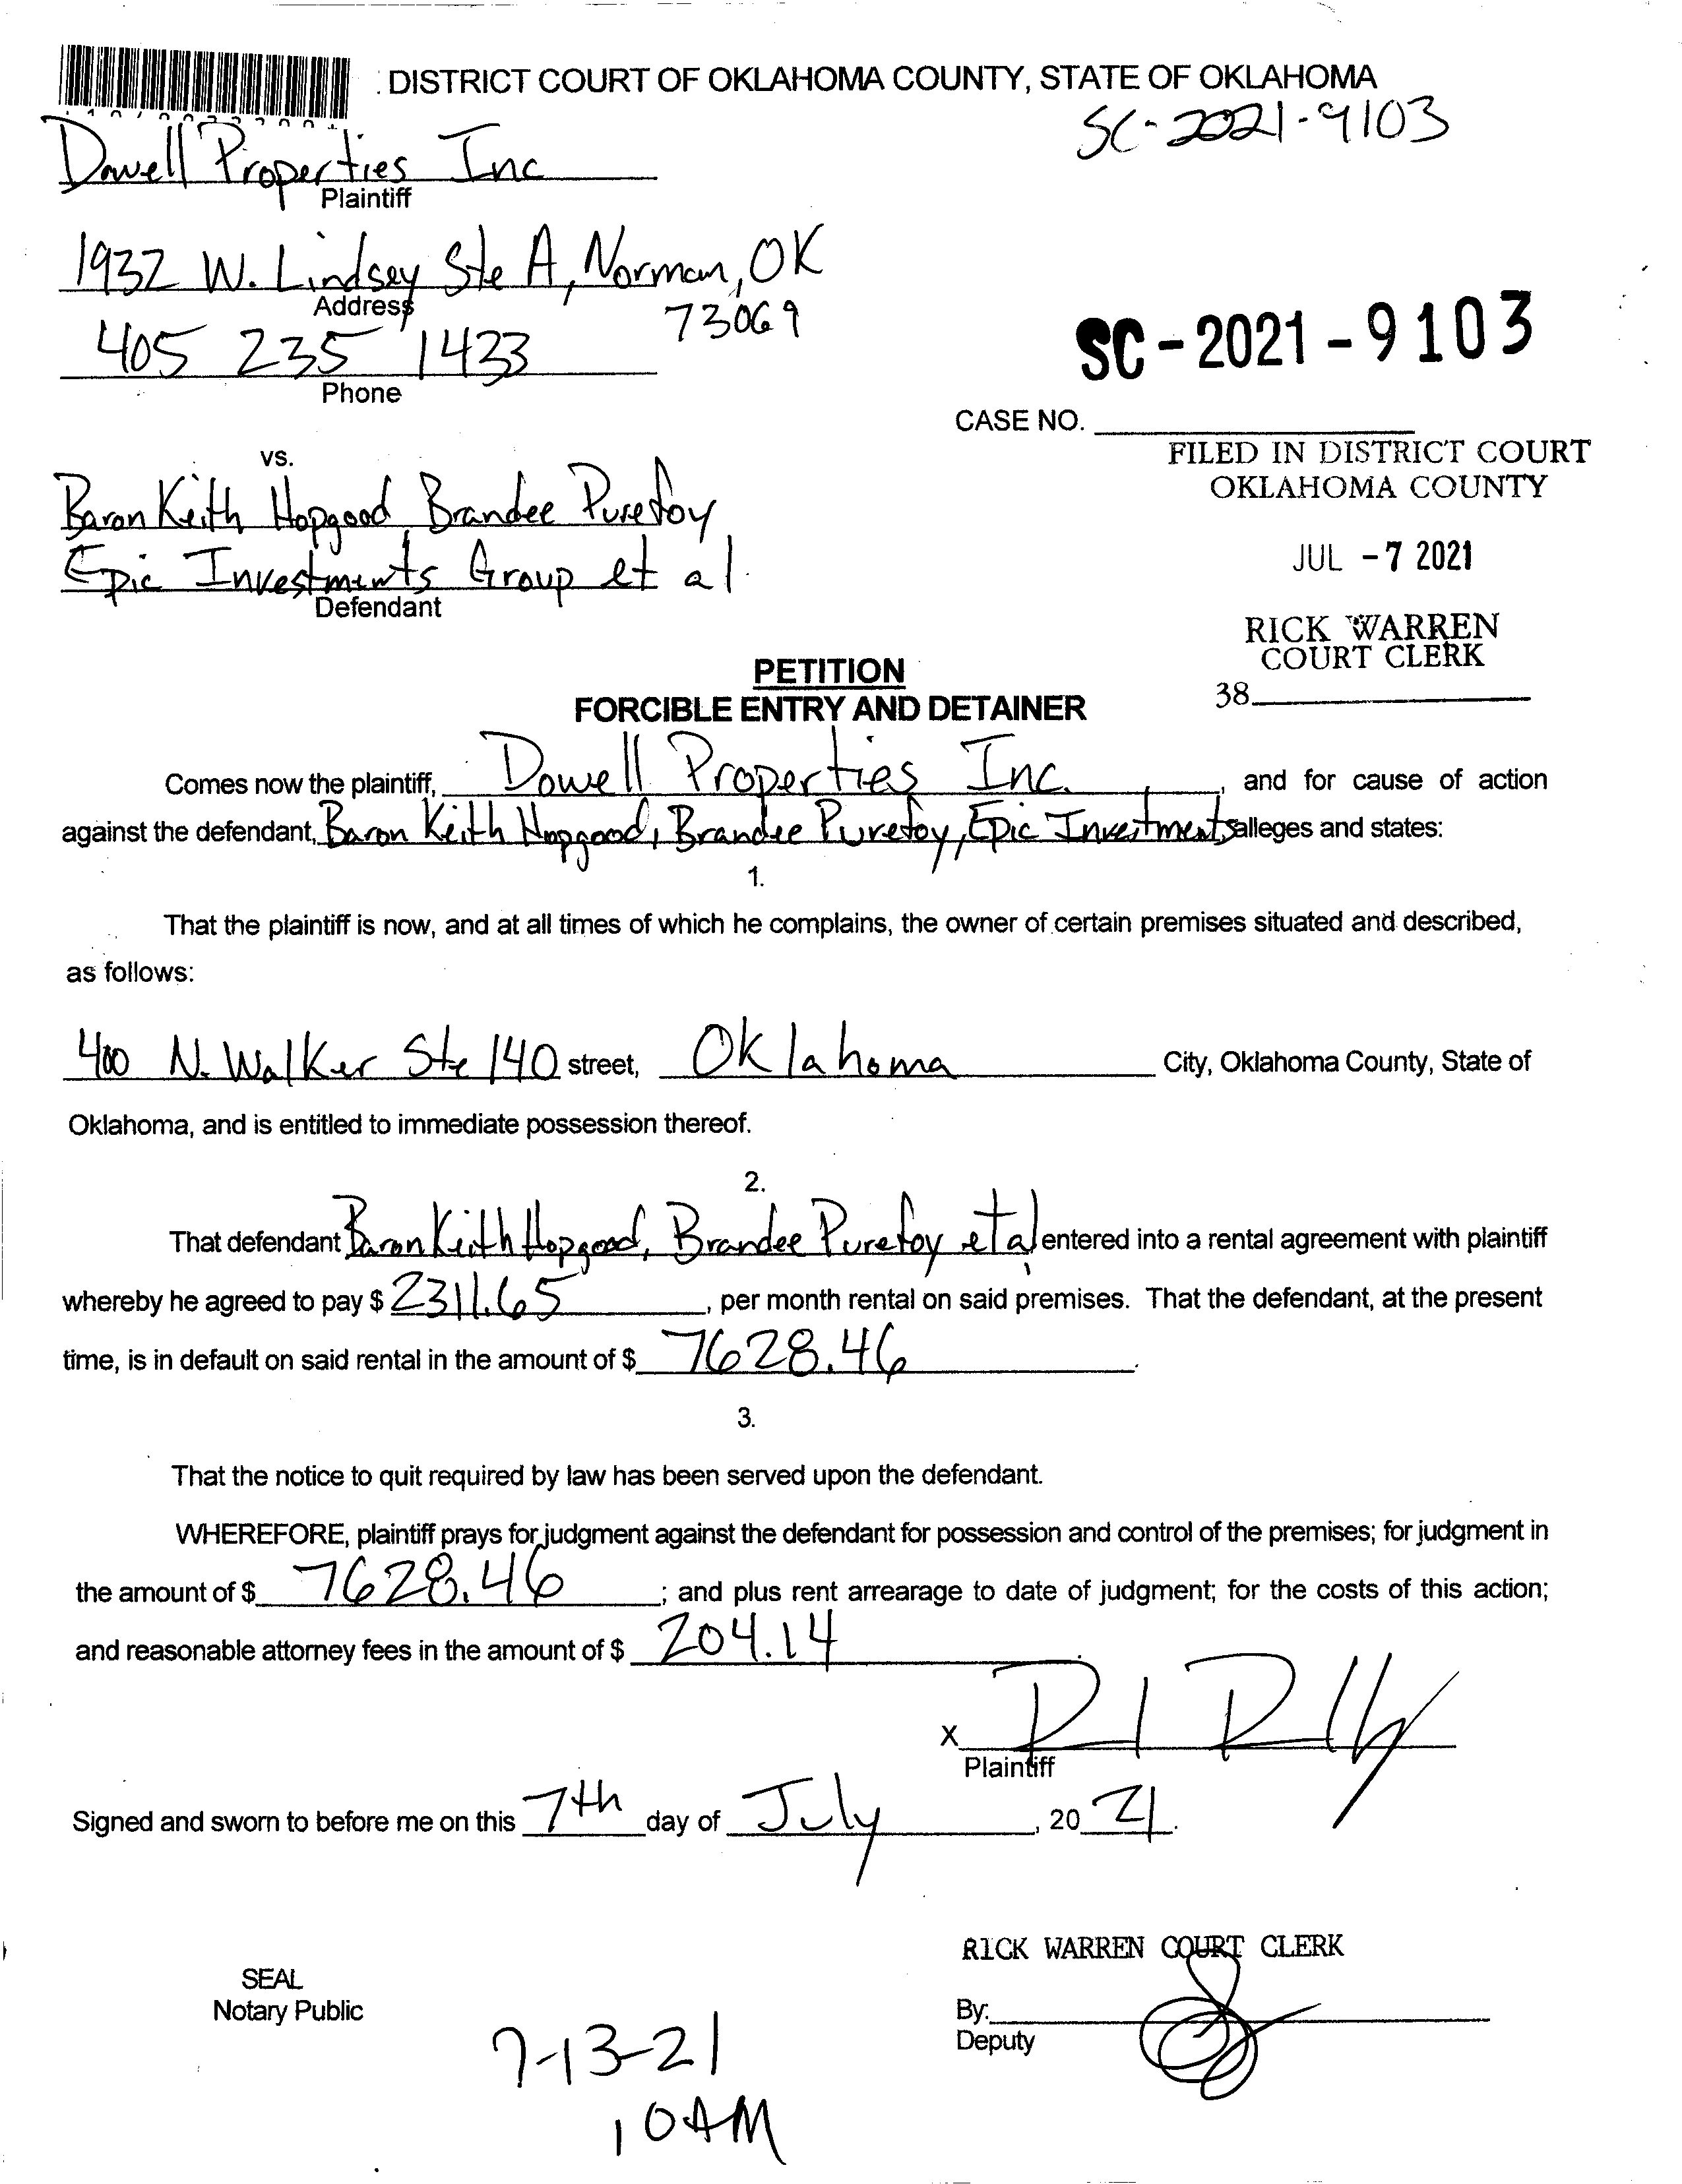 DISTRICT COURT OF OKLAHOMA COUNTY, STATE OF OKLAHOMA
SC-2021-9103
Dowell Properties Inc
Plaintiff
1932 W. Lindsey Ste A, Norman, OK
73069
Address
405 235 1433
Phone
SC-2021-9103
CASE NO.
FILED IN DISTRICT COURT
OKLAHOMA COUNTY
JUL -7 2021
RICK WARREN
COURT CLERK
38
vs.
Baron Keith Hopgood Brandee Purefoy
Epic Investments Group et al.
Defendant
PETITION
FORCIBLE ENTRY AND DETAINER
Comes now the plaintiff, Dowell Properties Inc. , and for cause of action
against the defendant, Baron Keith Hopgood, Brandee Purefoy, Epic Investments alleges and states:
1.
That the plaintiff is now, and at all times of which he complains, the owner of certain premises situated and described,
as follows:
400 N. Walker Ste 140 street, Oklahoma City, Oklahoma County, State of
Oklahoma, and is entitled to immediate possession thereof.
2.
That defendant Baron Keith Hopgood, Brandee Purefoy et al entered into a rental agreement with plaintiff
whereby he agreed to pay $ 2311.65 , per month rental on said premises. That the defendant, at the present
time, is in default on said rental in the amount of $ 7628.46 .
3.
That the notice to quit required by law has been served upon the defendant.
WHEREFORE, plaintiff prays for judgment against the defendant for possession and control of the premises; for judgment in
the amount of $ 7628.46 ; and plus rent arrearage to date of judgment; for the costs of this action;
and reasonable attorney fees in the amount of $ 204.14 .
X
Plaintiff
Signed and sworn to before me on this 7th day of July , 20 21.
RICK WARREN COURT CLERK
SEAL
Notary Public
By:
Deputy
7-13-21
10 AM